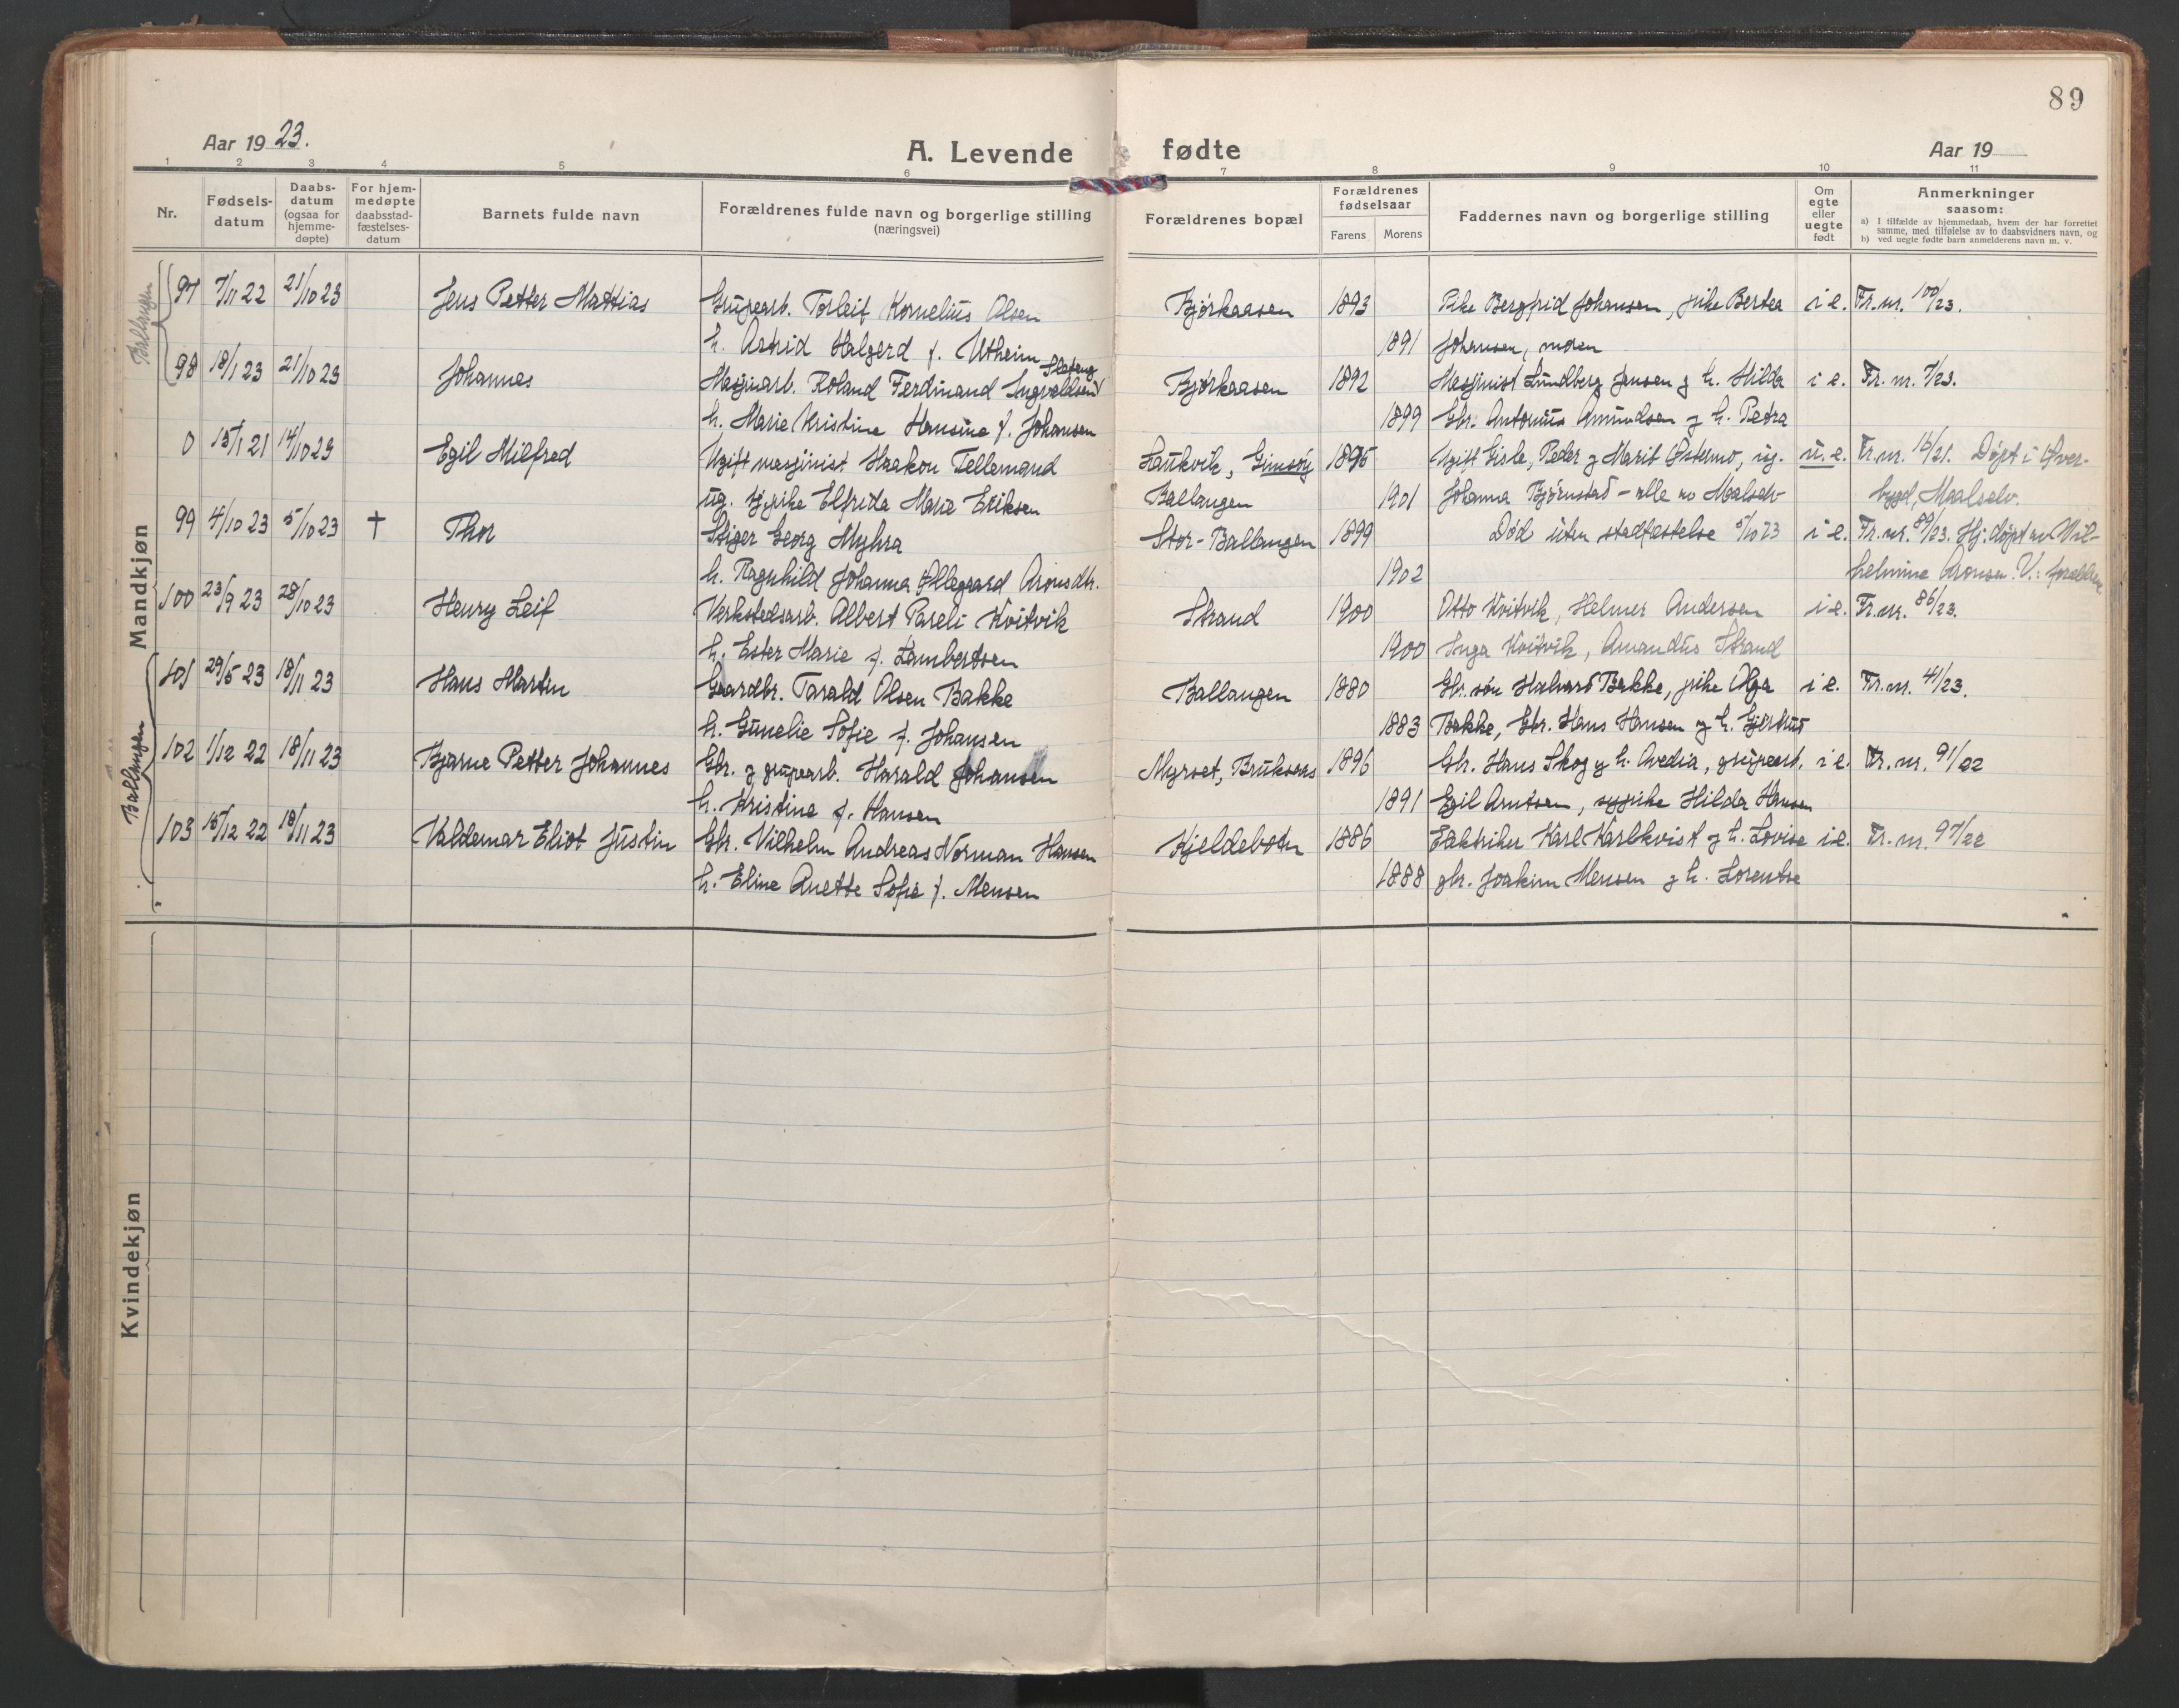 89
Aar 1923.
A. Levende fødte
Aar 19
1 2 3 4 5 6 7 8 9 10 11
Nr.
Fødsels-
datum
Daabs-
datum
(ogsaa for
hjemme-
døpte)
For hjem-
medøpte
daabsstad-
fæstelses-
datum
Barnets fulde navn
Forældrenes fulde navn og borgerlige stilling
(næringsvei)
Forældrenes bopæl
Forældrenes
fødselsaar
Farens Morens
Faddernes navn og borgerlige stilling
Om
egte
eller
uegte
født
Anmerkninger
saasom:
a) I tilfælde av hjemmedaab, hvem der har forrettet
samme, med tilføielse av to daabsvidners navn, og
b) ved uegte fødte barn anmelderens navn m. v.
Mandkjøn
Ballangen
97 7/11 22 21/10 23 Jens Petter Mattias Grupearb. Torleif Kornelius Olsen Bjørkaasen 1893 Pike Bergfrid Johansen, pike Bertea i e. Fr. nr. 100/23.
h. Astrid Halgerd f. Utheim 1891 Johansen, moren
Slatteng
98 18/1 23 21/10 23 Johannes Masjinarb. Roland Ferdinand Ingvaldsen Bjørkaasen 1892 Masjinist Lundberg Jensen g h. Hilda i e. Fr. nr. 7/23.
h. Marie Kristine Hansine f. Johansen 1899 Gbr. Antonius Amundsen g h. Petra
0 15/1 21 14/10 23 Egil Milfred Ugift masjinist Haakon Tellemand Laukvik, Gimsøy 1895 Ugift Gisle, Peder g Marit Østermo, ug. u. e. Fr. nr. 16/21. Døpt i Øver-
ug. sypike Elfrida Marie Eriksen Ballangen 1901 Johanna Bjørnstad - alle av Malselv bygd, Maalselv.
99 4/10 23 5/10 23 † Thor Stiger Georg Myhra Stor-Ballangen 1899 Død uten stadfæstelse 5/10 23 i e. Fr. nr. 89/23. Hj. døpt av Vil-
h. Ragnhild Johanna Ollegaard Aronsdtr. 1902 helmine Aronsen. V.: forældrene
100 23/9 23 28/10 23 Henry Leif Verkstedsarb. Albert Pareli Kvitvik Strand 1900 Otto Kvitvik, Helmer Andersen i e. Fr. nr. 86/23.
h. Ester Marie f. Lambertsen 1900 Inga Kvitvik, Amandus Strand
Ballangen
101 29/5 23 18/11 23 Hans Martin Gaardbr. Tarald Olsen Bakke Ballangen 1880 Gbr. søn Halvard Bakke, pike Olga i e. Fr. nr. 41/23.
h. Gunelie Sofie f. Johansen 1883 Bakke, Gbr. Hans Hansen g h. Gjertrud
102 1/12 22 18/11 23 Bjarne Petter Johannes Gbr. g grupearb. Harald Johansen Myrset, Bruksaas 1896 Gbr. Hans Skog g h. Avedia, grupearb. i e. Fr. nr. 91/22
h. Kristine f. Hansen 1891 Egil Arntsen, sypike Hilda Hansen
103 15/12 22 18/11 23 Valdemar Eliot Justin Gbr. Vilhelm Andreas Norman Hansen Kjeldebotn 1886 Elektriker Karl Karlkvist g h. Lovise i e. Fr. nr. 97/22
h. Eline Anette Sofie f. Mensen 1888 gbr. Joakim Mensen g h. Lorentse
Kvindekjøn